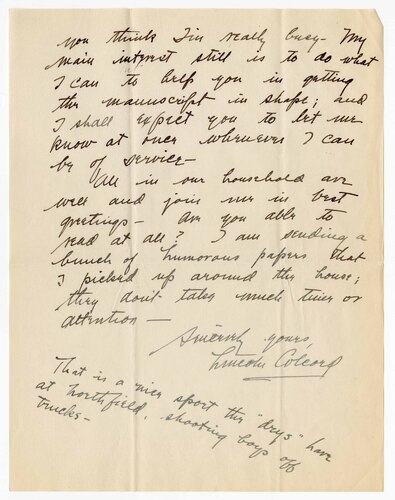 you think I'm really busy— My
main interest still is to do what
I can to help you in getting
the manuscript in shape; and
I shall expect you to let me
know at once whenever I can
be of service—
All in our household are
well and join me in best
greetings— Are you able to
read at all? I am sending a
bunch of humorous papers that
I picked up around the house;
they don't take much time or
attention—
Sincerely yours,
Lincoln Colcord
That is a nice sport the "drys" have
at Northfield, shooting boys off
trucks—